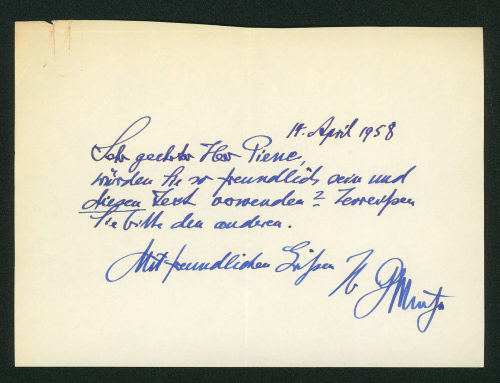 14. April 1958
Sehr geehrter Herr Piene,
würden Sie so freundlich sein und
diesen Text verwenden? Zerreißen
Sie bitte den anderen.
Mit freundlichen Grüßen